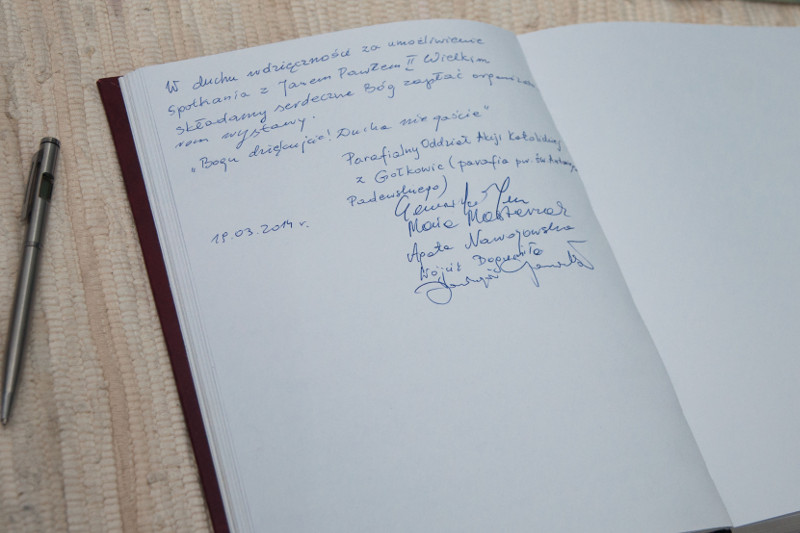 W duchu wdzięczności za umożliwienie
spotkania z Janem Pawłem II Wielkim
składamy serdeczne Bóg zapłać organizato
rom wystawy.
„Bogu dziękujcie! Ducha nie gaście"
Parafialny Oddział Akcji Katolickiej
z Gołkowic (parafia pw. św. Antoniego
Padewskiego)
19.03.2014 r.
Maria
Agata Nawojowska
Wójcik Bogumiła